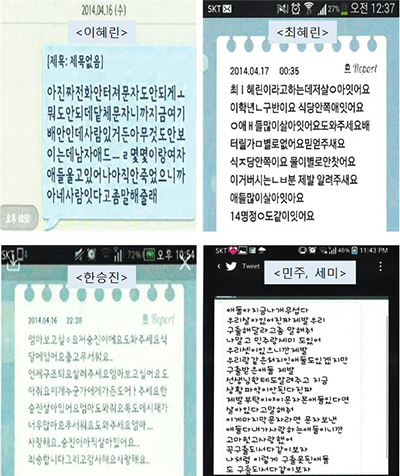 2014.04.16 (수)
<이혜린>
[제목: 제목없음]
아진짜전화안터져문자도안되게ㅗ
뭐도안되데달체문자니까지금여기
배안인데사람있거든아무것도안보
이는데남자애드ㅡㄹ몇몇이랑여자
애들울고있어나아직안죽었으니까
아네사람잇다고좀말해줄래
오후 10:50
SKT 27% 오전 12:37
<최혜린>
2014.04.17 00:35
Report
최ㅣ혜린이라고하는데저살아잇어요
이학년ㄴ구반이요 식당안쪽애잇어요
ㅇ애ㅐ들많이살아잇어요도와주세요배
터릴가ㅁ별로없어요믿얻주새요
식ㅈ당안쪽이요 물이별로안찻어요
이거버시는ㄴㅂ분 제발 알려주새요
애들많이살아잇아요
14명정ㅇ도같이잇어요
SKT 72% 오후 10:54
<한승진>
2014.04.16 22:20
Report
엄마보고싶ㅇ요저승진이에요도와주세요식
당에있어요춥고무서워요..
언제구조되요살려주세요엄마보고싶어요도
아줘요이게누군가에게가든도어ㅏ주세요한
승진살아있어요엄마도와줘요복도에시채가
너무많아요무서워요도와주세요엄마...
사랑해요..승진이아직살아있어요..
죄송합니다그리고감사해요사랑해요..
46% 11:43 PM
<민주, 세미>
Tweet
애들아지금나게무섭다
우리살아있어진짜제발우리
구출해달라고좀 말해줘
나말고 민주랑세미 도있어
우리셋이있으니까제발
우리같은처지인애들도있겠지만
구출받은애들 제발
선생님한테도알려주고 지금
상황파악이안된다진짜
제발부탁이야이문자본애들있다면
살아있다고말해줘
이게마지막문자라면 문자보낸
애들다내가사랑하는애들이니깐
고마웠고사랑했어
꼭구출되서다같이보자
나처럼 이렇게 구출못된애들
도 구출되서다같이보자